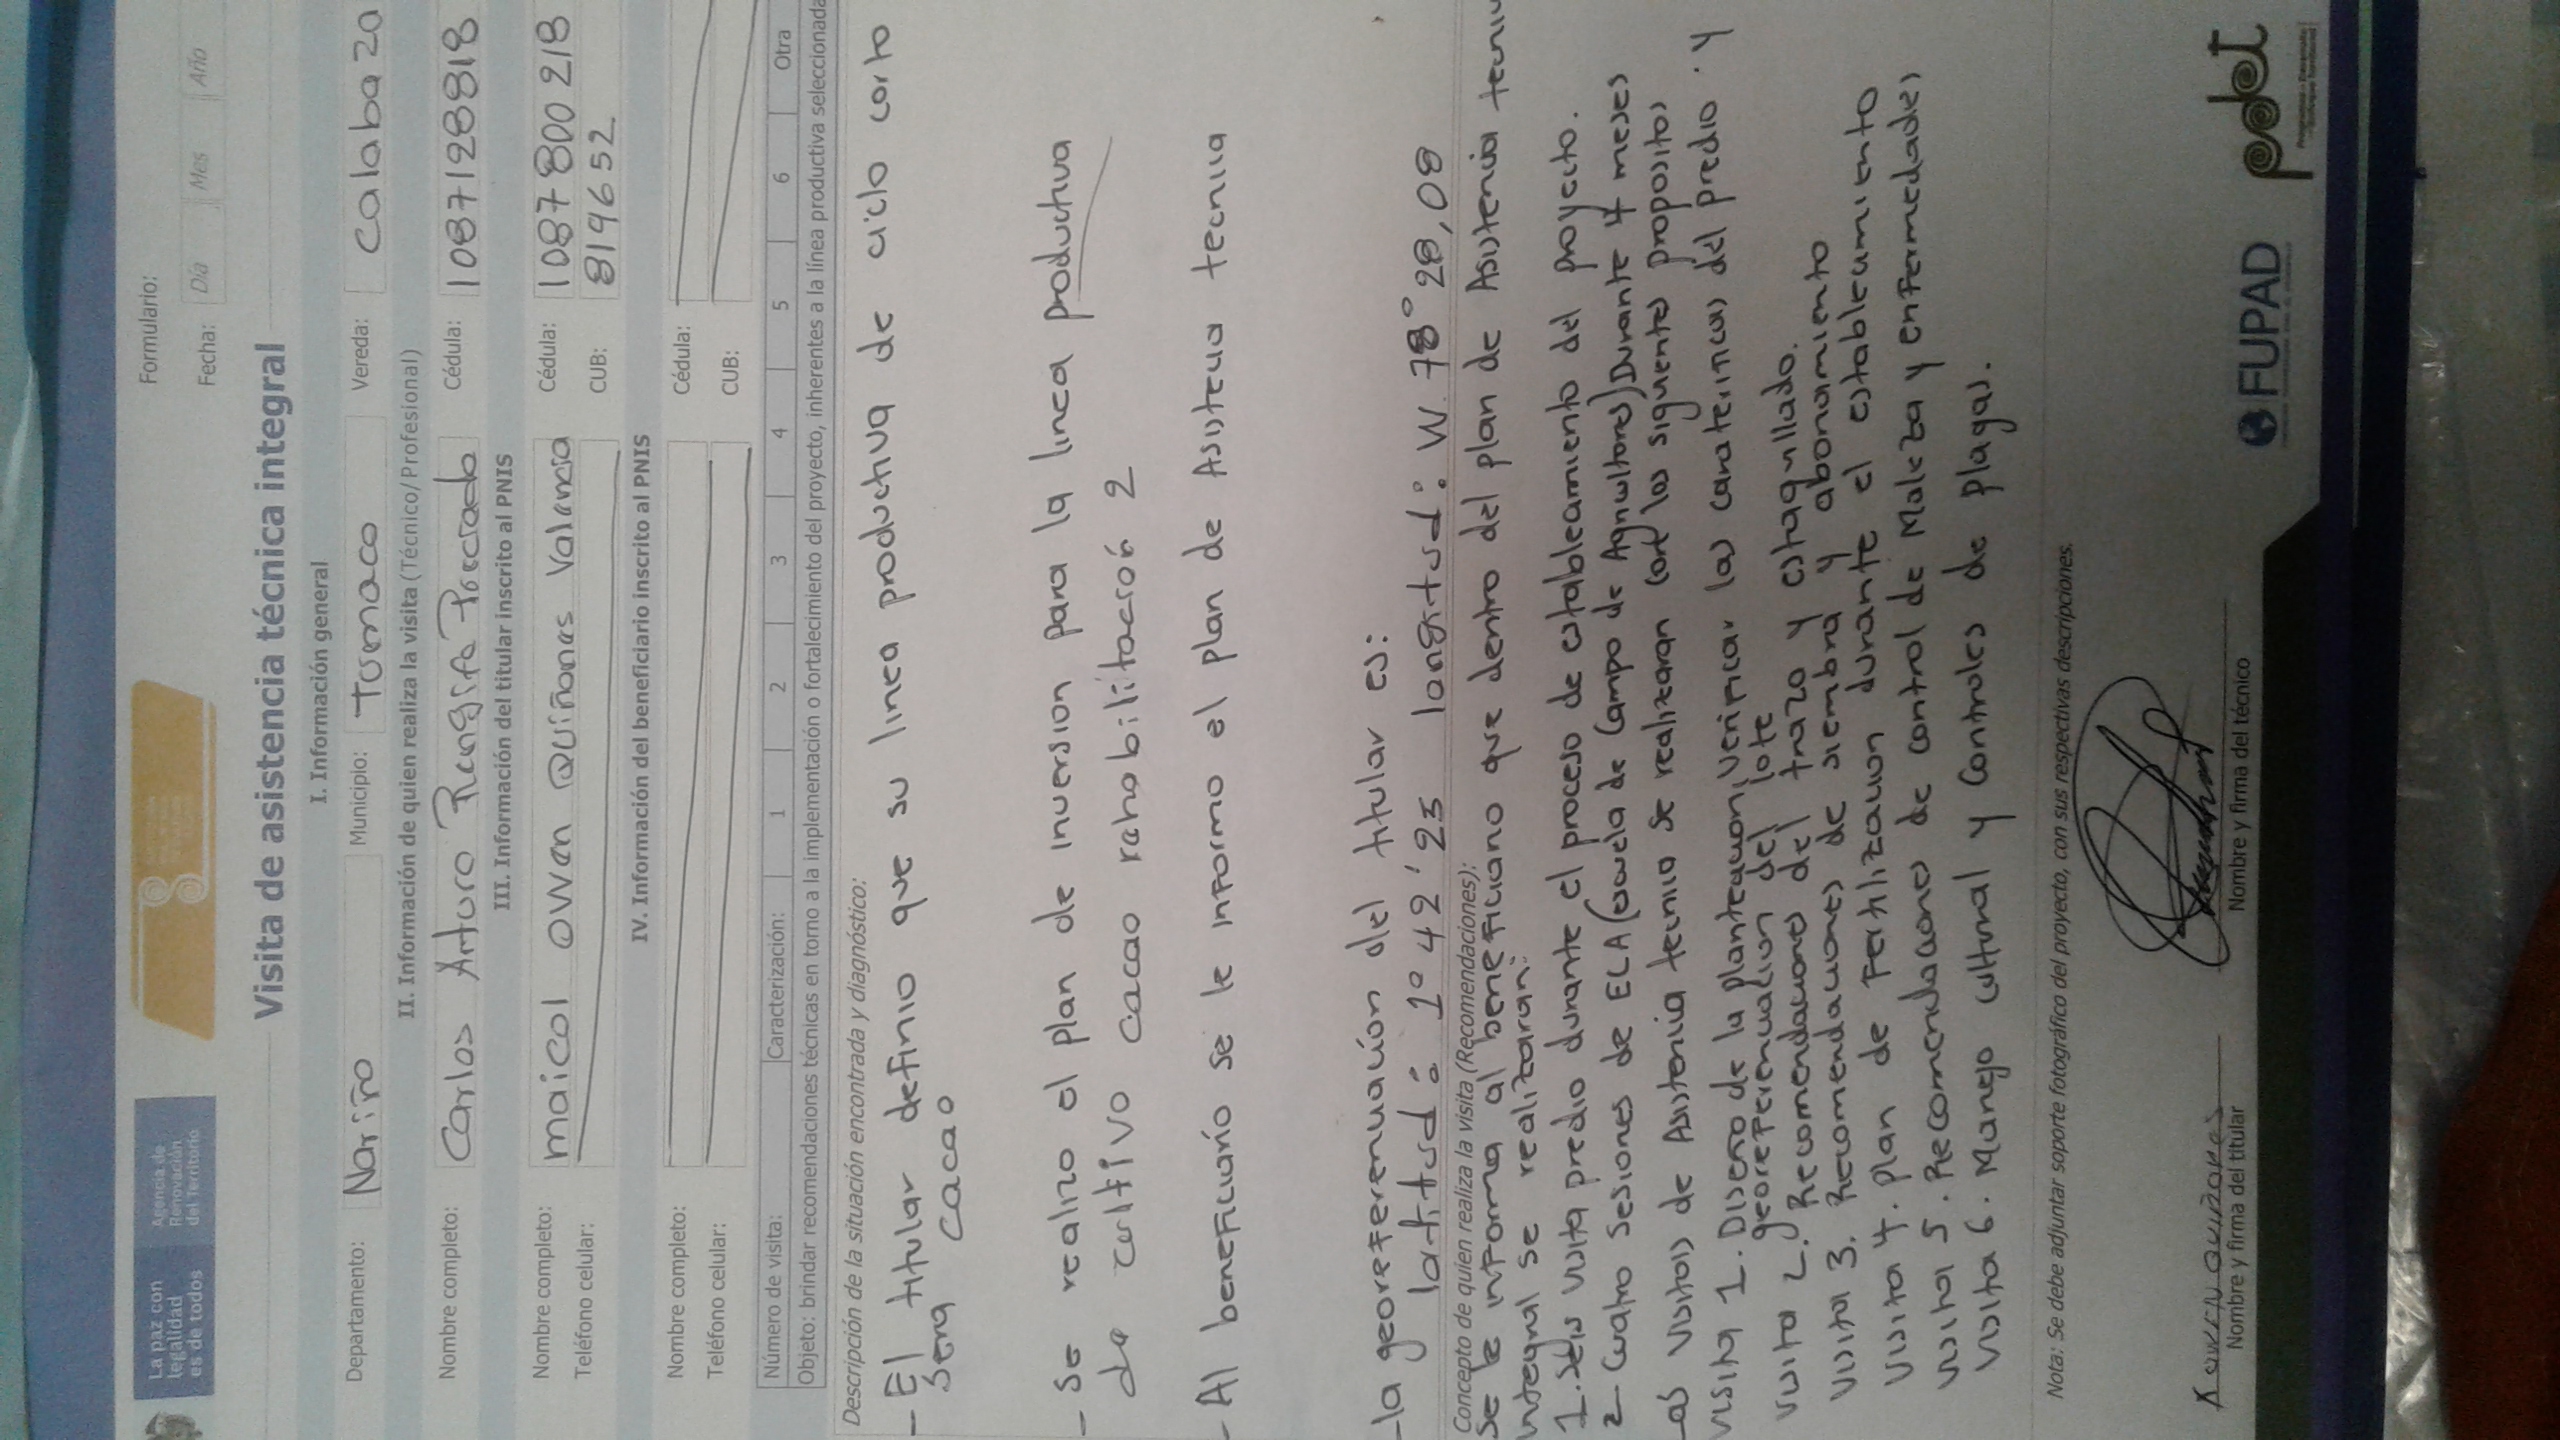 La paz con
legalidad
es de todos
Agencia de
Renovación
del Territorio
Formulario:
Fecha: Día Mes Año
Visita de asistencia técnica integral
I. Información general
Departamento: Nariño Municipio: Tumaco Vereda: Calabazo
II. Información de quien realiza la visita (Técnico/ Profesional)
Nombre completo: Carlos Arturo Rengifo Preciado Cédula: 1087128818
III. Información del titular inscrito al PNIS
Nombre completo: maicol owen Quiñones Valencia Cédula: 1087800218
Teléfono celular: CUB: 819652
IV. Información del beneficiario inscrito al PNIS
Nombre completo: Cédula:
Teléfono celular: CUB:
Número de visita: Caracterización: 1 2 3 4 5 6 Otra
Objeto: brindar recomendaciones técnicas en torno a la implementación o fortalecimiento del proyecto, inherentes a la línea productiva seleccionada
Descripción de la situación encontrada y diagnóstico:
- El titular definio que su linea productiva de ciclo corto
Sera cacao
- Se realizo el plan de inversion para la linea productiva
de cultivo cacao rahabilitación 2
- Al beneficiario se le informo el plan de Asistecia tecnica
- la georeferenciación del titular es:
latitud: 1° 42' 23 longitud: W. 78° 28,08
Concepto de quien realiza la visita (Recomendaciones):
Se le informa al beneficiario que dentro del plan de Asistencia tecnic
integral se realizaran:
1. Seis visita predio durante el proceso de establecimiento del proyecto.
2- Cuatro Sesiones de ELA (escuela de Campo de Agricultores) Durante 4 meses
as visitas de Asistencia tecnica se realizaran con los siguientes propositos
visita 1. Diseño de la planteacion, verificar las caracteristicas del predio. y
georeferenciacion del lote
visita 2. Recomendaciones del trazo y estaquillado.
visita 3. Recomendaciones de siembra y abonamiento
visita 4. plan de Fertilizacion durante el establecimiento
visita 5. Recomendaciones de control de Maleza y enfermedades
visita 6. Manejo cultural y Controles de plagas.
Nota: Se debe adjuntar soporte fotográfico del proyecto, con sus respectivas descripciones.
Nombre y firma del titular Nombre y firma del técnico
FUPAD
pdet